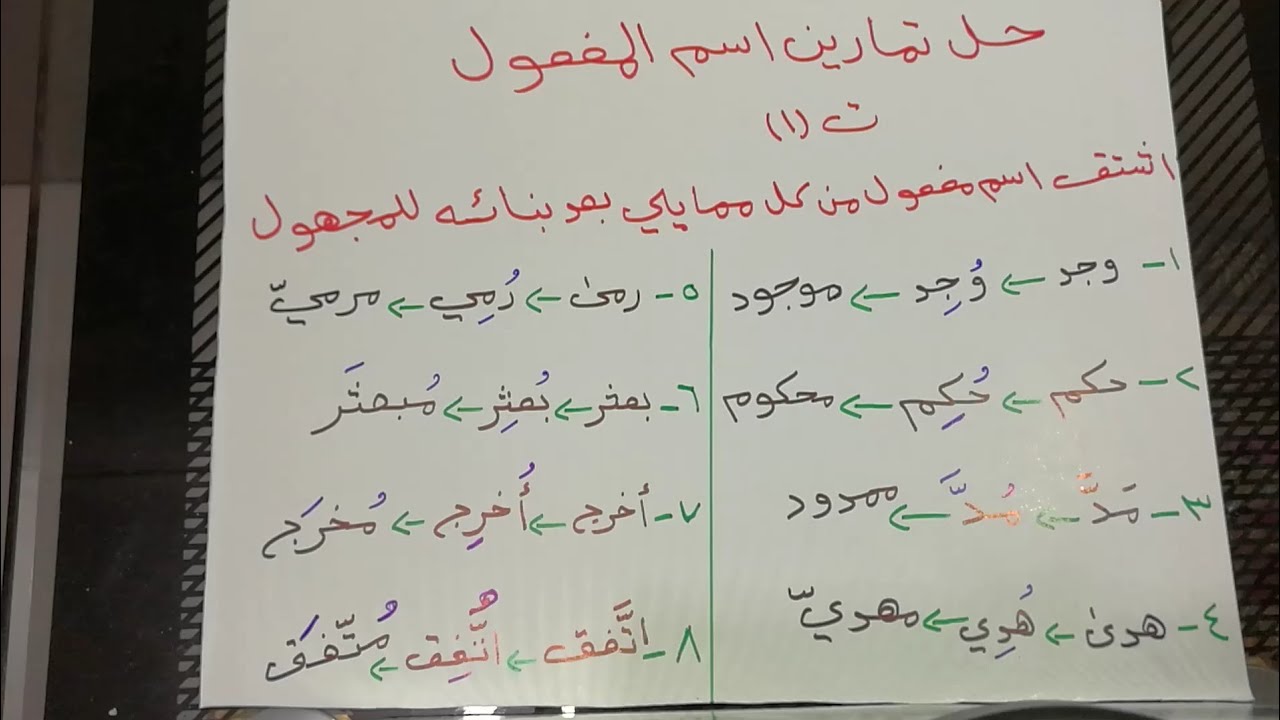 حل تمارين اسم المفعول
ت (١)
اشتق اسم مفعول من كل ممايلي بعد بنائه للمجهول
١- وجد ← وُجِد ← موجود
٢- حكم ← حُكِم ← محكوم
٣- مَدَّ ← مُدَّ ← ممدود
٤- هدىٰ ← هُدِي ← مهديّ
٥- رمىٰ ← رُمِي ← مرميّ
٦- بعثر ← بُعثِر ← مُبعثَر
٧- أخرج ← أُخرِج ← مُخرَج
٨- اتَّفق ← اتُّفِق ← مُتّفَق